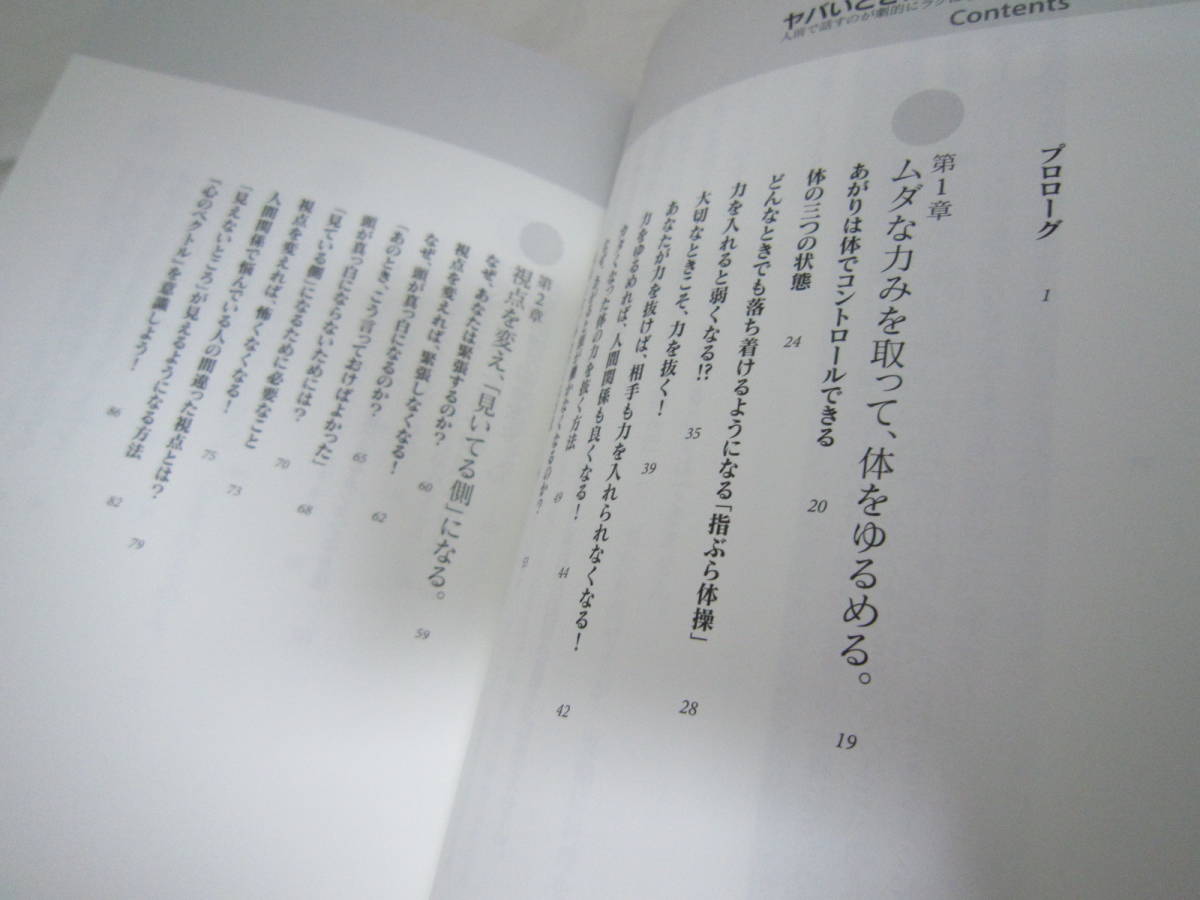 ヤバいとき
人前で話すのが劇的にラクに
Contents
プロローグ 1
第1章
ムダな力みを取って、体をゆるめる。 19
あがりは体でコントロールできる 20
体の三つの状態 24
どんなときでも落ち着けるようになる「指ぶら体操」 28
力を入れると弱くなる!? 35
大切なときこそ、力を抜く! 39
あなたが力を抜けば、相手も力を入れられなくなる! 42
力をゆるめれば、人間関係も良くなる! 44
体の力を抜く方法 49
第2章
視点を変え、「見いてる側」になる。 59
なぜ、あなたは緊張するのか? 60
視点を変えれば、緊張しなくなる! 62
なぜ、頭が真っ白になるのか? 65
「あのとき、こう言っておけばよかった」 68
頭が真っ白にならないためには? 70
「見ている側」になるために必要なこと 73
視点を変えれば、怖くなくなる! 75
人間関係で悩んでいる人の間違った視点とは? 79
「見えないところ」が見えるようになる方法 82
「心のベクトル」を意識しよう! 86